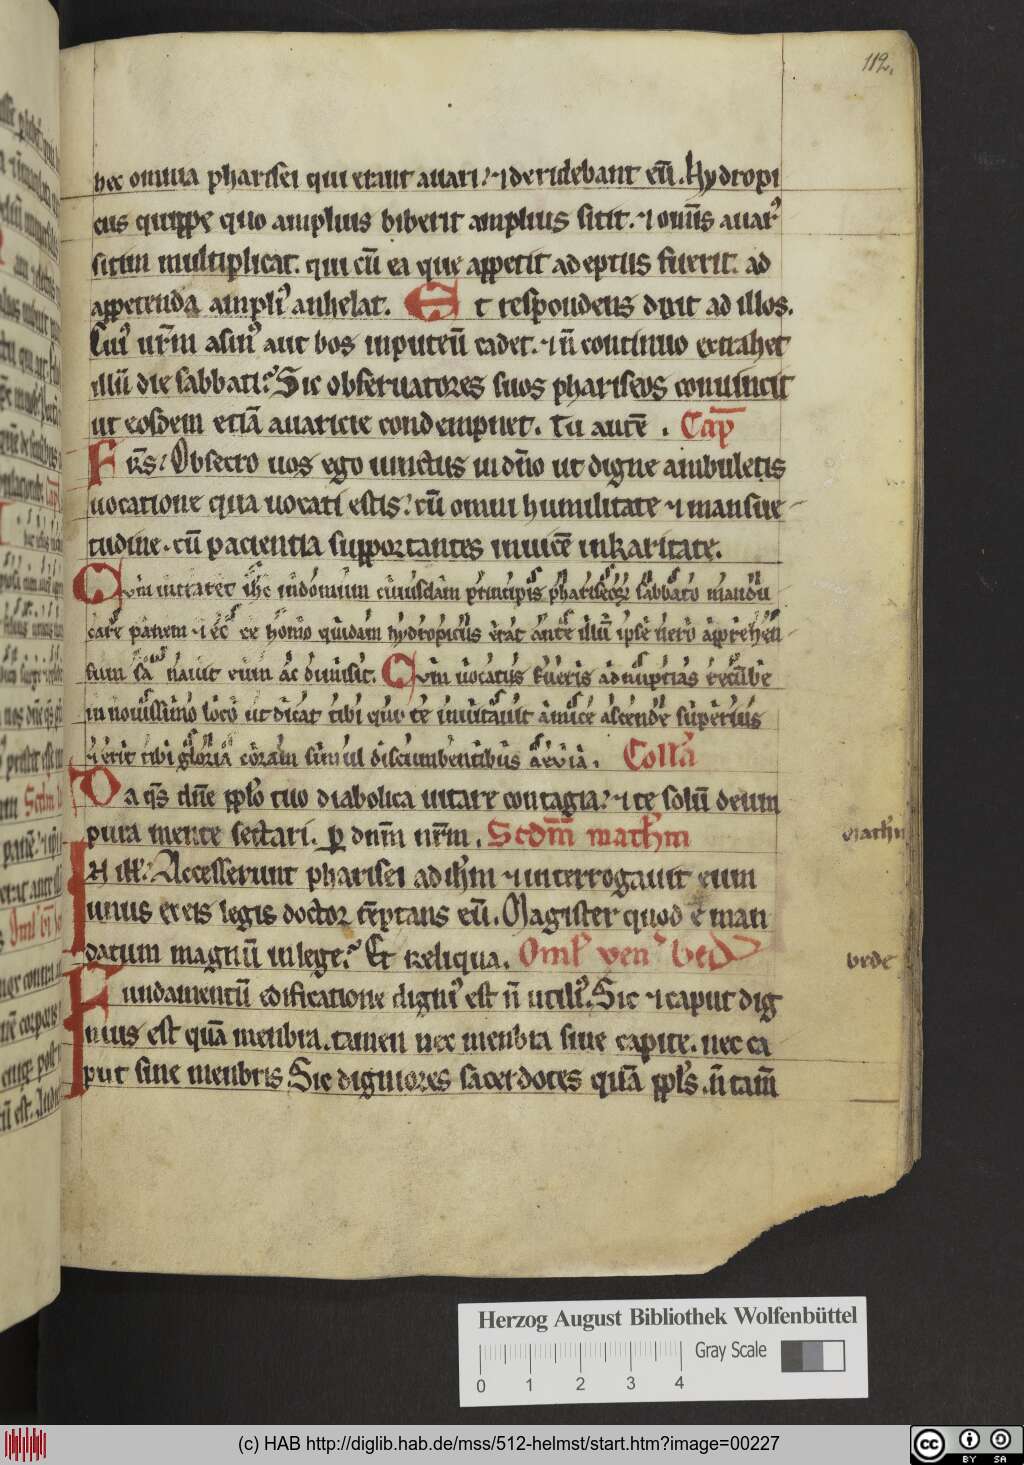 112.
hec omnia pharisei qui erant auari ⁊ deridebant eū. Hydropi
cus quippe quo amplius biberit amplius sitit. ⁊ omīs auarꝰ
sitim multiplicat. qui cū ea que appetit adeptus fuerit. ad
appetenda ampliꝰ anhelat. Et respondens dixit ad illos.
Cuiꝰ ur̄m asinꝰ aut bos in puteū cadet. ⁊ n̄ continuo extrahet
illū die sabbati? Sic obseruatores suos phariseos conuincit
ut eosdem etiā auaricie condempnet. tu autē. Cap̄
Fr̄s: Obsecro uos ego uinctus in dn̄o ut digne ambuletis
uocatione qua uocati estis: cū omni humilitate ⁊ mansue
tudine. cū paciencia supportantes inuicē in karitate.
Cum intraret ihc̄ in domum cuiusdam principis phariseoꝝ sabbato mandu
care panem ⁊ ecc̄ homo quidam hydropicus erat ante illū ipse uero apprehen
sum sanauit eum ac dimisit. Cum uocatus fueris ad nuptias recūbe
in nouissimo loco ut dicat tibi qui te inuitauit amice ascende superius
⁊ erit tibi gloria coram simul discumbentibus aeuia. Coll'a
Da q̄s dn̄e pp̄lo tuo diabolica uitare contagia: ⁊ te solū deum
pura mente sectari. ꝑ dnm̄ nr̄m. Scdm̄ math'm
In ill'. Accesserunt pharisei ad ih̄m ⁊ interrogauit eum
unus ex eis legis doctor tēptans eū. Magister quod ē man
datum magnū in lege? Et reliqua. Oml' uen' bed
math'm
bede
Fundamentū edificatione digniꝰ est n̄ utiliꝰ. Sic ⁊ caput dig
nius est quā menbra. tamen nec menbra sine capite. nec ca
put sine menbris Sic digniores sacerdotes quā pp̄l's. n̄ tam̄
Herzog August Bibliothek Wolfenbüttel
Gray Scale
0 1 2 3 4
(c) HAB http://diglib.hab.de/mss/512-helmst/start.htm?image=00227
cc BY SA